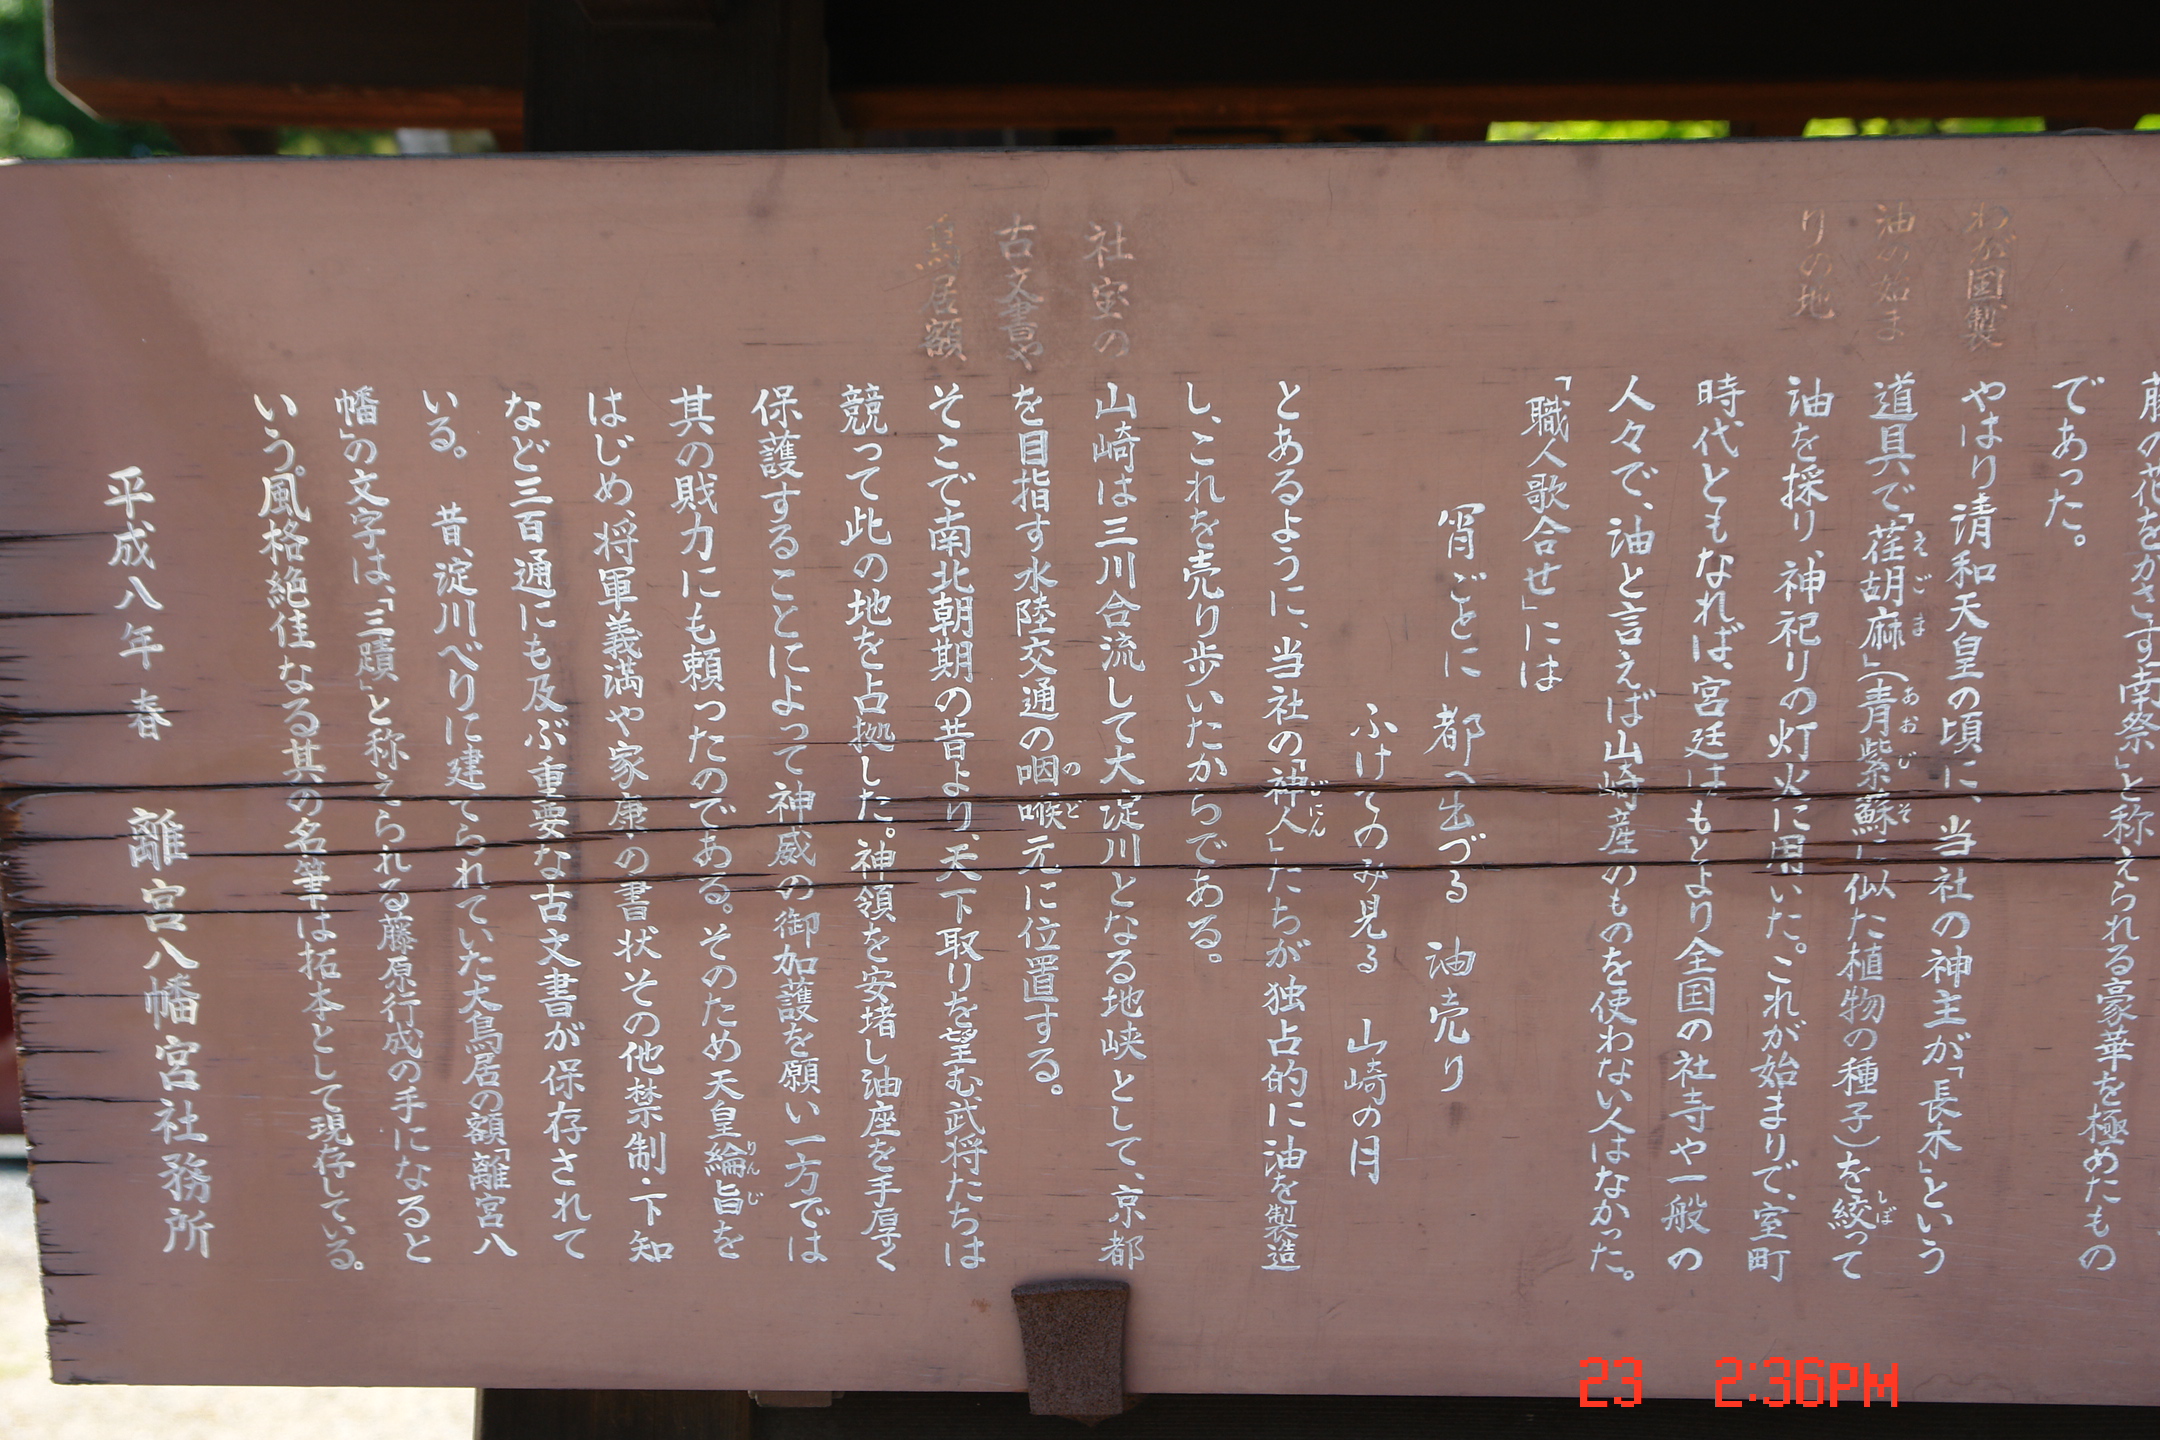 藤の花をかざす南祭」と称えられる豪華を極めたもの
であった。
わが国製
油の始ま
りの地
やはり清和天皇の頃に、当社の神主が「長木」という
道具で「荏胡麻」(青紫蘇に似た植物の種子)を絞って
油を採り、神祀りの灯火に用いた。これが始まりで、室町
時代ともなれば、宮廷はもとより全国の社寺や一般の
人々で、油と言えば山崎産のものを使わない人はなかった。
「職人歌合せ」には
宵ごとに 都へ出づる 油売り
ふけてのみ見る 山崎の月
とあるように、当社の「神人」たちが独占的に油を製造
し、これを売り歩いたからである。
社宝の
古文書や
鳥居額
山崎は三川合流して大淀川となる地峡として、京都
を目指す水陸交通の咽喉元に位置する。
そこで南北朝期の昔より、天下取りを望む武将たちは
競って此の地を占拠した。神領を安堵し油座を手厚く
保護することによって神威の御加護を願い一方では
其の財力にも頼ったのである。そのため天皇綸旨を
はじめ、将軍義満や家康の書状その他禁制・下知
など三百通にも及ぶ重要な古文書が保存されて
いる。 昔、淀川べりに建てられていた大鳥居の額「離宮八
幡」の文字は、「三蹟」と称えられる藤原行成の手になると
いう。風格絶佳なる其の名筆は拓本として現存している。
平成八年 春 離宮八幡宮社務所
えごま
あおじそ
しぼ
じにん
のど
りんじ
23 2:36PM